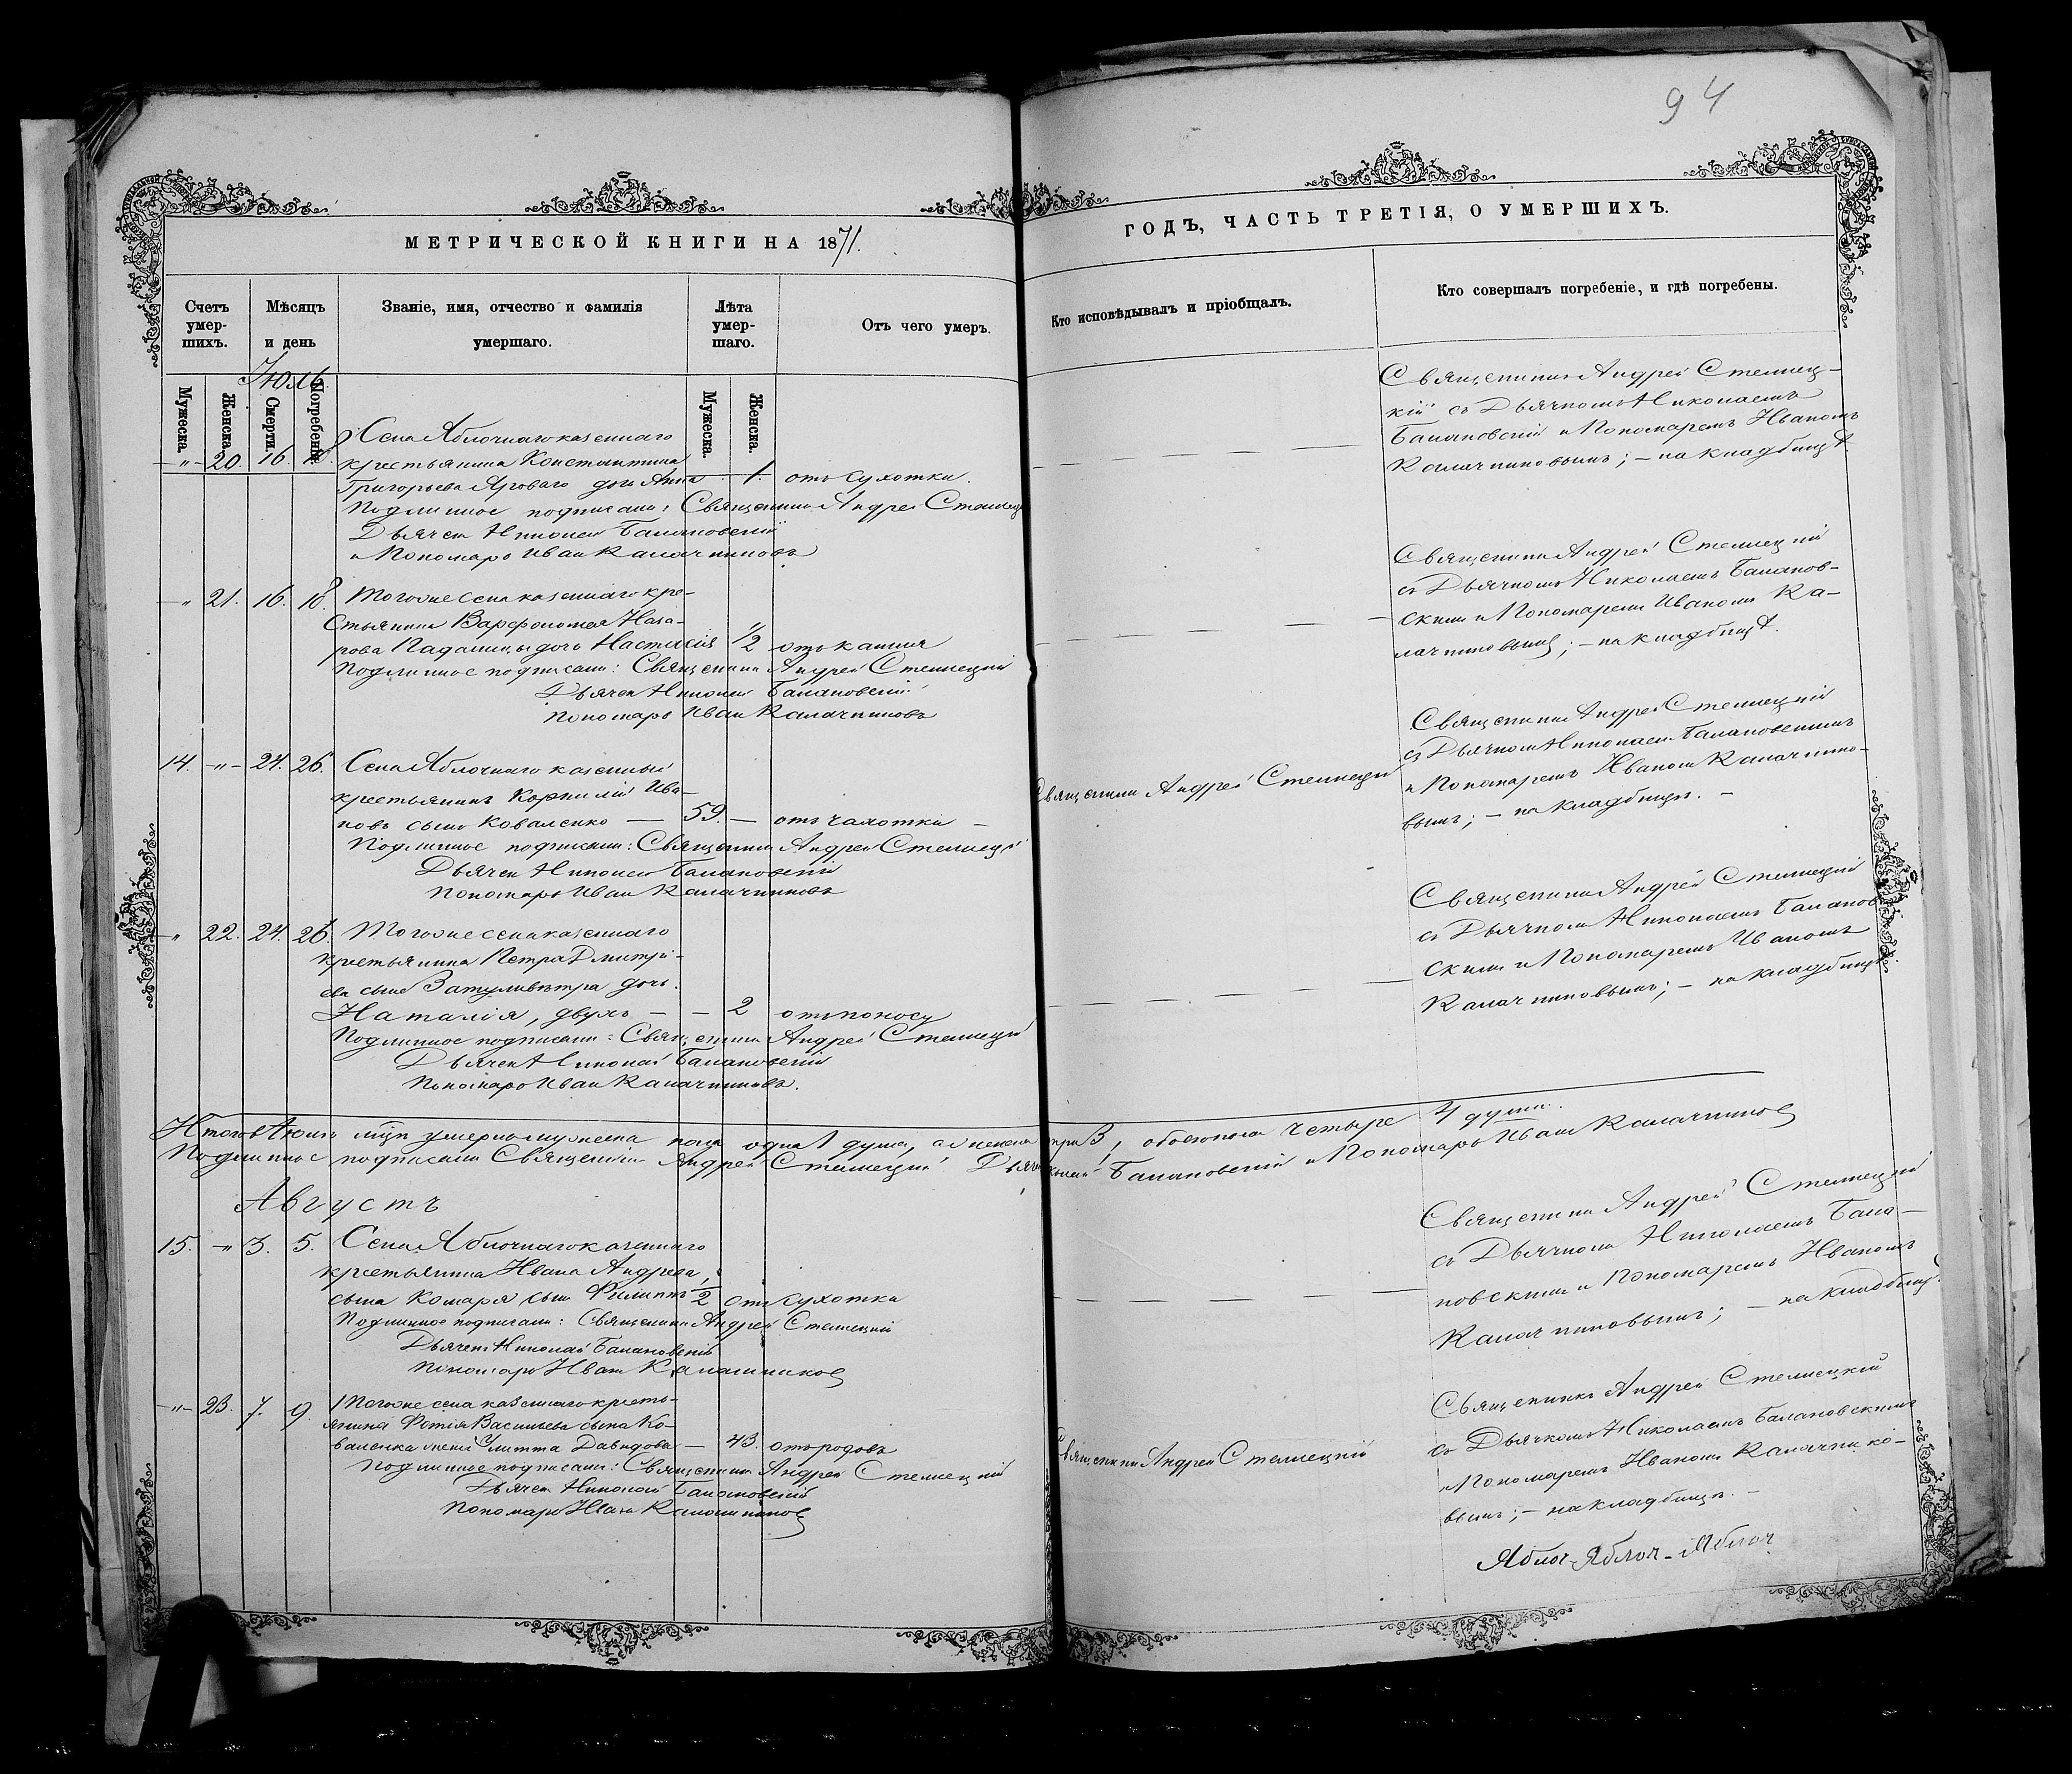 94
МЕТРИЧЕСКОЙ КНИГИ НА 1871.
ГОДЪ, ЧАСТЬ ТРЕТІЯ, О УМЕРШИХЪ.
Счетъ умер- шихъ.
Мѣсяцъ и день
Званіе, имя, отчество и фамилія умершаго.
Лѣта умер- шаго.
Отъ чего умеръ.
Кто исповѣдывалъ и пріобщалъ.
Кто совершалъ погребеніе, и гдѣ погребены.
Мужеска.
Женска.
Іюль
Смерти.
Погребенія.
Мужеска.
Женска.
Села Яблочнаго казеннаго
-"- 20. 16. 18. крестьянина Константина
Григорьева Яроваго дочь Анна 1. отъ сухотки.
Подлинное подписали: Священникъ Андрей Стеллец
Дьячек Николай Балановскій
и Пономарь Иван Калачниковъ
Священникъ Андрей Стеллец-
кій съ Дьячкомъ Николаемъ
Балановскій и Пономаремъ Иваномъ
Калачниковымъ; - на кладбищѣ
-"- 21. 16. 18. Тогоже села казеннаго кре-
стьянина Варфоломея Наза-
рова Падалицы дочь Настасія 1/2 отъ кашля
Подлинное подписали: Священник Андрей Стеллецкій
Дьячек Николай Балановскій
Пономарь Иван Калачниковъ
Священник Андрей Стеллецкій
съ Дьячкомъ Николаемъ Баланов-
ским и Пономарем Иваном Ка-
лачниковымъ; - на кладбищѣ.
14. -"- 24. 26. Села Яблочнаго казенный
крестьянинъ Корнилій Ива-
новъ сынъ Коваленко - 59. - отъ чахотки -
Подлинное подписали: Священник Андрей Стеллецкій
Дьячек Николай Балановскій
Пономарь Иван Калачниковъ
Священник Андрей Стеллецкій
Священник Андрей Стеллецкій
съ Дьячком Николаем Балановскимъ
и Пономаремъ Иваном Калачнико-
вымъ; - на кладбищѣ. -
-"- 22. 24. 26. Тогоже села казеннаго
крестьянина Петра Дмитрі-
ева сына Затуливѣтра дочь.
Наталія, двухъ - - 2 отъ поносу
Подлинное подписали: Священник Андрей Стеллецкій
Дьячек Николай Балановскій
Пономарь Иван Калачниковъ.
Священник Андрей Стеллецкій
съ Дьячком Николаемъ Баланов
ским и Пономаремъ Иваномъ
Калачниковымъ; - на кладбищѣ.
Итого в Іюль мцѣ умерло мужеска пола одна 1 душа, а женска три 3, обоего пола четыре 4 души.
Подлинное подписали Священник Андрей Стеллецкій Дьячек Николай Балановскій и Пономарь Иван Калачников
Августъ
15. -"- 3. 5. Села Яблочнаго казеннаго
крестьянина Ивана Андреева
сына Комаря сын Филиппъ 1/2 отъ сухотки
Подлинное подписали: Священник Андрей Стеллецкій
Дьячек Николай Балановскій
Пономарь Иван Калашников
Священник Андрей Стеллецкій
съ Дьячком Николаемъ Бала-
новским и Пономаремъ Иваномъ
Калачниковымъ; - на кладбищѣ.
-"- 23. 7. 9. Тогоже села казеннаго кресть-
янина Фотія Васильева сына Ко-
валенка жена Улитта Давидова - 43. отъ родовъ
Подлинное подписали: Священник Андрей Стеллецкій
Дьячек Николай Балановскій
Пономарь Иван Калашников
Священник Андрей Стеллецкій
Священникъ Андрей Стеллецкій
съ Дьячкомъ Николаемъ Балановскимъ
и Пономаремъ Иваном Калачнико-
вымъ; - на кладбищѣ. -
Яблоч-Яблоч-Яблоч